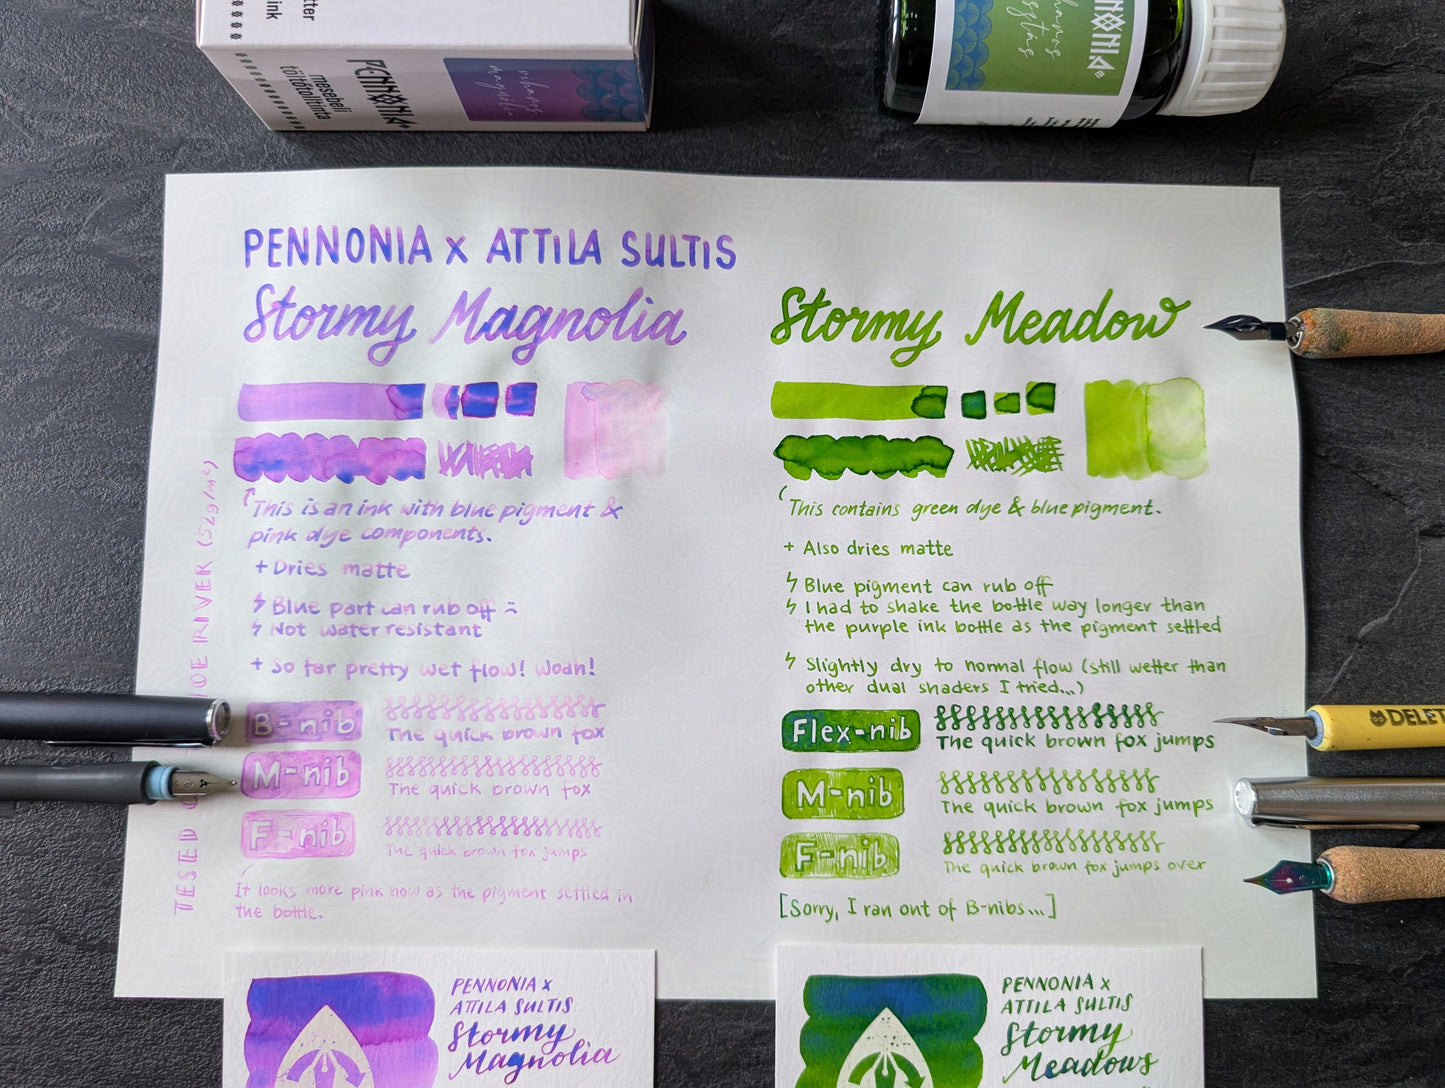 tter
ink
PENNONIA
mesebeli
töltőtolltinta
viharos
magnólia
PENNONIA
viharos
PENNONIA x ATTILA SULTIS
Stormy Magnolia
Stormy Meadow
This is an ink with blue pigment &
pink dye components.
+ Dries matte
Blue part can rub off :(
Not water resistant
+ So far pretty wet flow! Woah!
B-nib
The quick brown fox
M-nib
The quick brown fox
F-nib
The quick brown fox jumps
It looks more pink now as the pigment settled in
the bottle.
This contains green dye & blue pigment.
+ Also dries matte
Blue pigment can rub off
I had to shake the bottle way longer than
the purple ink bottle as the pigment settled
Slightly dry to normal flow (still wetter than
other dual shaders I tried...)
Flex-nib
The quick brown fox jumps
M-nib
The quick brown fox jumps
F-nib
The quick brown fox jumps over
[Sorry, I ran out of B-nibs...]
TESED O OE RIVER (52g/m²)
DELET
PENNONIA x
ATTILA SULTIS
Stormy
Magnolia
PENNONIA x
ATTILA SULTIS
Stormy
Meadows